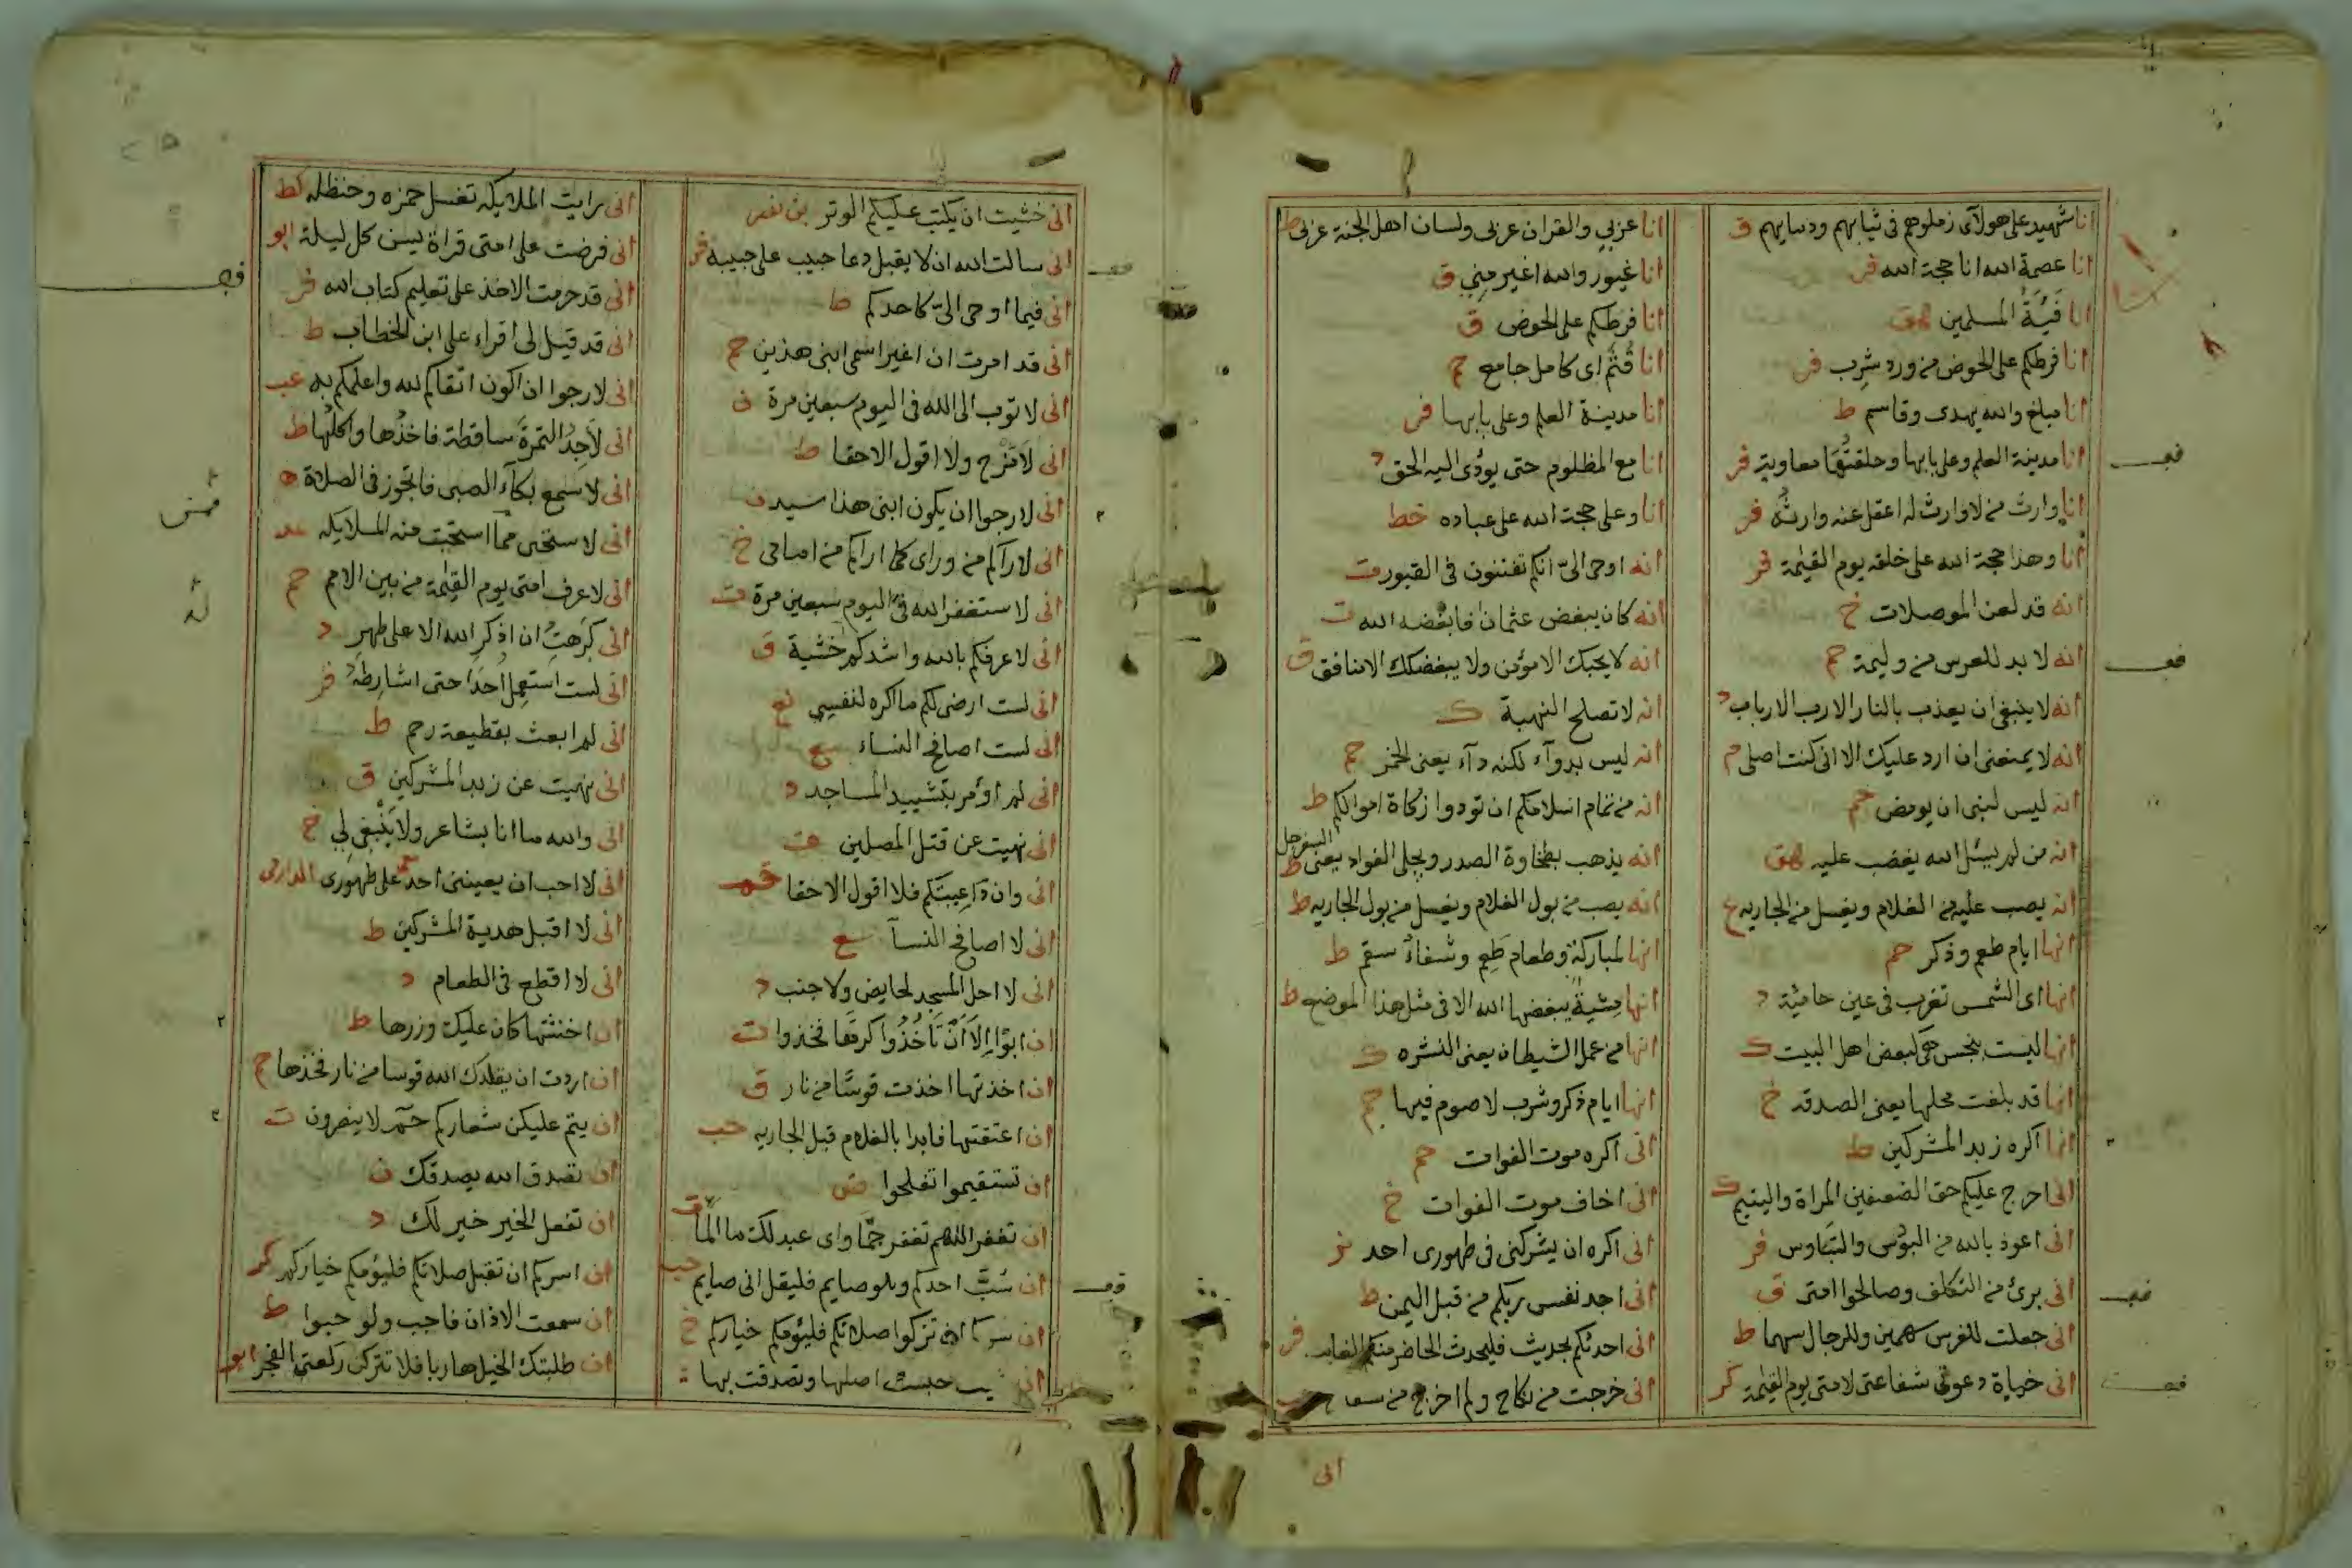 انا شهيد على هولاى زملوهم فى ثيابهم ودمايهم ق
انا عصمة الله انا حجة الله فر
انا فَيَئَةُ المسلمين هق
انا فرطكم على الحوض من ورد شرب فر
انا مبلغ والله يهدى وقاسم ط
انا مدينة العلم وعلى بابها وحلقتُها معاوية فر
انا وارث من لا وارث له اعقل عنه وارثُه فر
انا وهذا حجة الله على خلقه يوم القيمة فر
انه قد لعن الموصلات خ
انه لا بد للعرس من وليمة حم
انه لا ينبغى ان يعذب بالنار الا رب الارباب د
انه لا يمنعنى ان ارد عليك الا انى كنت اصلى م
انه ليس لنبى ان يومض حم
انه من لم يسئل الله يغضب عليه هق
انه يصب عليه من الغلام ويغسل من الجاريه ع
انها ايام طعم وذكر حم
انها اى الشمس تغرب فى عين حامئة د
انها ليست بنجس هى كبعض اهل البيت ك
انها قد بلغت محلها يعنى الصدقه خ
انا اكره زبد المشركين ط
انى احرج عليكم حق الضعيفين المراة واليتيم ك
انى اعوذ بالله من البؤس والتباوس فر
انى برئ من التكلف وصالحوا امتى ق
انى جعلت للفرس سهمين وللرجال سهما ط
انى خباة دعوتى شفاعتى لامتى يوم القيمة كر
انا عربي والقران عربى ولسان اهل الجنة عربى ط
انا غيور والله اغير مني ق
انا فرطكم على الحوض ق
انا قُثَم اى كامل جامع حم
انا مدينة العلم وعلى بابها فر
انا مع المظلوم حتى يؤدى اليه الحق د
انا وعلى حجة الله على عباده خط
انه اوحى الىّ انكم تفتنون فى القبور مت
انه كان يبغض عثمان فابغضه الله ت
انه لا يحبك الا مؤمن ولا يبغضك الا منافق ق
انه لا تصلح النهبة ك
انه ليس بدوآء لكنه دآء يعنى الخمر حم
انه من تمام اسلامكم ان تودوا زكاة اموالكم ط
انه يذهب بطخاوة الصدر ويجلى الفواد يعنى السفرجل ط
انه يصب من بول الغلام ويغسل من بول الجاريه ط
انها لمباركة وطعام طعم وشفاء سقم ط
انها مِشيةُ يبغضها الله الا فى مثل هذا الموضع ط
انها من عمل الشيطان يعنى النشره ك
انها ايام ذكر وشرب لا صوم فيها حم
انى اكره موت الفوات حم
انى اخاف موت الفوات خ
انى اكره ان يشركنى فى طهورى احد
انى اجد نفس ربكم من قبل اليمن ط
انى احدثكم بحديث فليحدث الحاضر منكم الغايب فر
انى خرجت من نكاح ولم اخرج من سفاح
انى
انى خشيت ان يكتب عليكم الوتر بن نصر
انى سالت الله ان لا يقبل دعا حبيب على حبيبه فر
انى فيما اوحى الىّ كاحدكم ط
انى قد امرت ان اغير اسمى ابنى هذين حم
انى لا توب الى الله فى اليوم سبعين مرة ن
انى لامزح ولا اقول الا حقا ط
انى لارجوا ان يكون ابنى هذا سيد ن
انى لاراكم من وراى كما اراكم من امامى خ
انى لاستغفر الله فى اليوم سبعين مرة ت
انى لاعرفكم بالله واشدكم خشية ق
انى لست ارضى لكم ما اكره لنفسي
انى لست اصافح النساء
انى لم اؤمر بتشييد المساجد د
انى نهيت عن قتل المصلين
انى وان داعبتكم فلا اقول الا حقا
انى لا اصافح النسآ
انى لا احل المسجد لحايض ولا جنب د
ان ابوا إلا أن تأخذُوا كرها فخذوا ت
ان اخذتها اخذت قوسًا من نار ق
ان اعتقتها فابدا بالغلام قبل الجاريه حب
ان تستقيموا تفلحوا ض
ان تغفر اللهم تغفر جمًّا واى عبد لك ما المّا ق
ان سُبَّ احدكم وهو صايم فليقل انى صايم حب
ان سركم ان تزكوا صلاتكم فليؤمكم خياركم خ
حبست اصلها وتصدقت بها
انى رايت الملايكه تغسل حمزه وحنظله كط
انى فرضت على امتى قراة يس كل ليلة ابو
انى قد حرمت الاخذ على تعليم كتاب الله فر
انى قد قيل لى اقراء على ابن الخطاب ط
انى لارجوا ان اكون اتقاكم لله واعلمكم به عب
انى لأجِدُ التمرةَ ساقطة فاخذُها واكلُها ط
انى لاسمع بكآء الصبى فاتجوز فى الصلاة ه
انى لاستحى مما استحيت منه الملايكه عد
انى لاعرف امتى يوم القيمة من بين الامم حم
انى كَرِهتُ ان اذكر الله الا على طهر د
انى لست استعمل احدًا حتى اشارطه فر
انى لم ابعث بقطيعة رحم ط
انى نهيت عن زبد المشركين ق
انى والله ما انا بشاعر ولا ينبغى لي خ
انى لا احب ان يعيننى احد على طهورى الدارمى
انى لا اقبل هدية المشركين ط
انى لا اقطع فى الطعام د
ان اخنثتها كان عليك وزرها ط
ان اردت ان يقلدك الله قوسا من نار فخذها ح
ان يتم عليكن شعاركم حم لا ينصرون ت
ان تصدق الله يصدقك ن
ان تفعل الخير خير لك د
ان اسركم ان تقبل صلاتكم فليؤمكم خياركم كر
ان سمعت الاذان فاجب ولو حبوا ط
ان طلبتك الخيل هاربا فلا تتركن ركعتى الفجر ابو